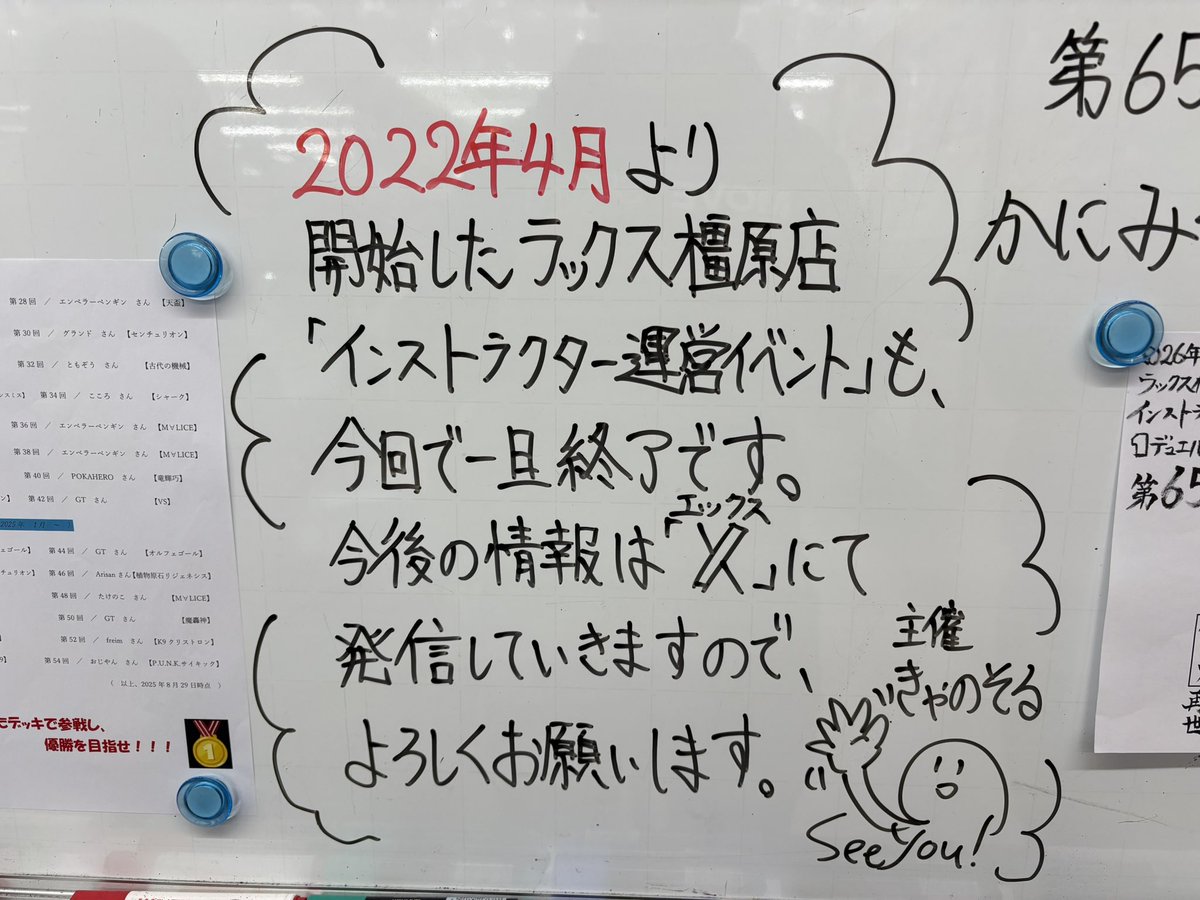 2022年4月より
開始したラックス橿原店
「インストラクター運営イベント」も、
今回で一旦終了です。
エックス
今後の情報は「X」にて
発信していきますので、
よろしくお願いします。
主催
きゃのそる
See you!
第65
かにみ
第28回 / エンペラーペンギン さん 【天盃】
第30回 / グランド さん 【センチュリオン】
第32回 / ともぞう さん 【古代の機械】
第34回 / こころ さん 【シャーク】
第36回 / エンペラーペンギン さん 【M∀LICE】
第38回 / エンペラーペンギン さん 【M∀LICE】
第40回 / POKAHERO さん 【竜輝巧】
第42回 / GT さん 【VS】
2025年 1月 ~ )
ェゴール】 第44回 / GT さん 【オルフェゴール】
チュリオン】 第46回 / Arisan さん【植物原石リジェネシス】
第48回 / たけのこ さん 【M∀LICE】
第50回 / GT さん 【魔轟神】
第52回 / freim さん 【K9クリストロン】
第54回 / おじやん さん 【P.U.N.K.サイキック】
( 以上、2025年8月29日時点 )
デッキで参戦し、
優勝を目指せ!!!
1
2026年
ラックス
インストラ
デュエル
第65
再
世